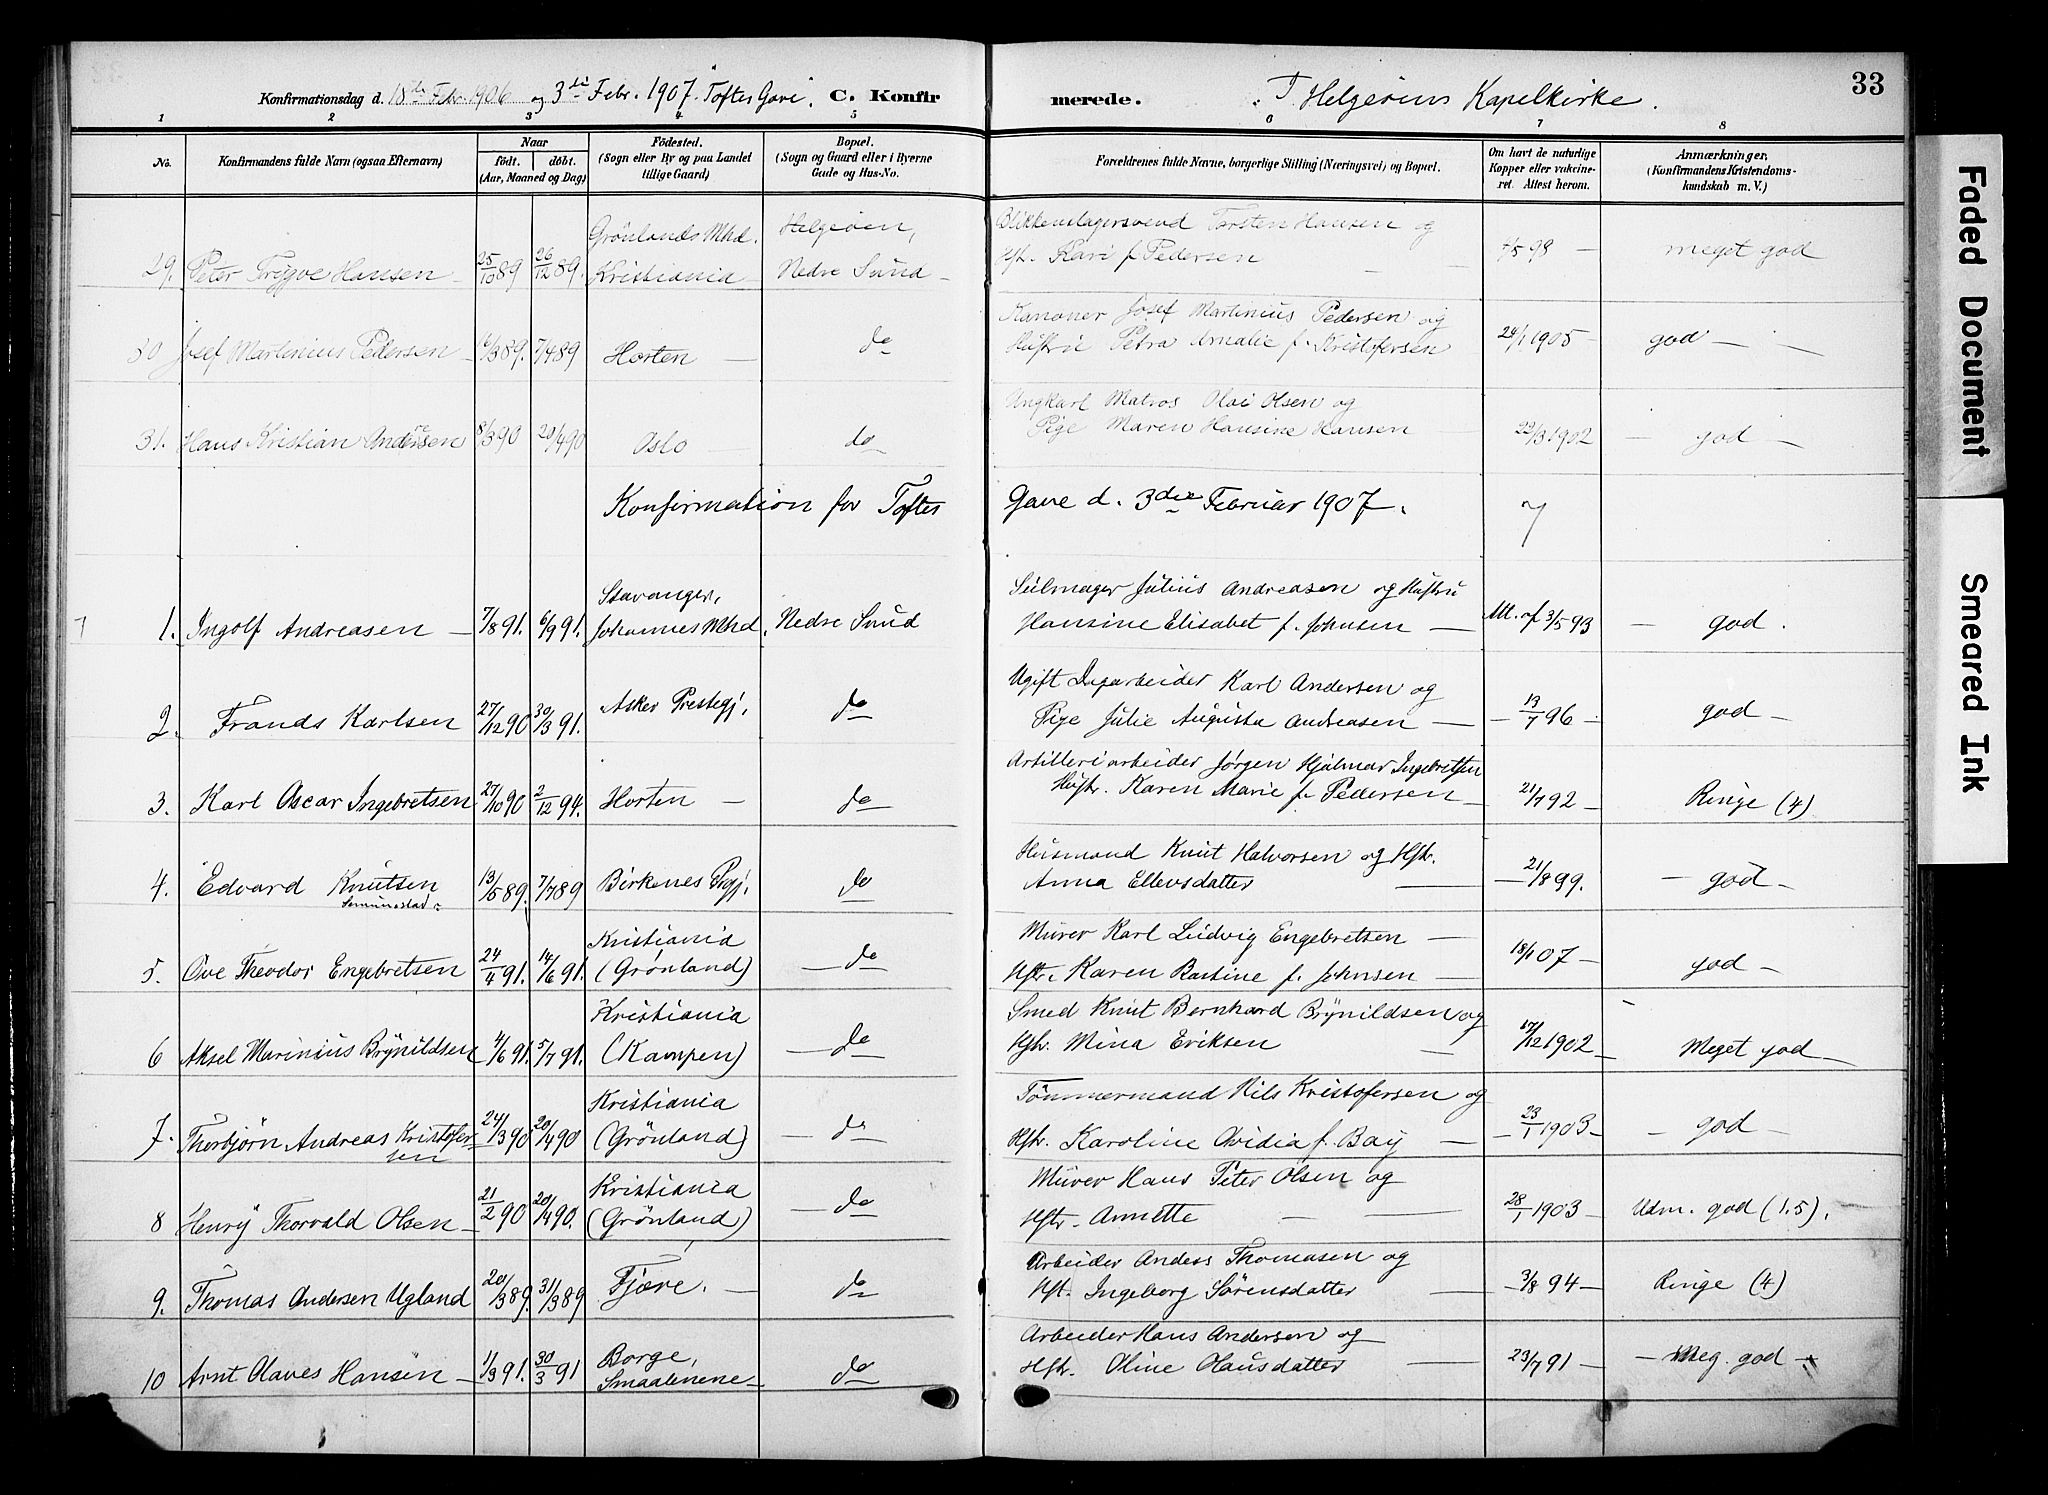 33
Konfirmationsdag d. 18de Febr. 1906 og 3die Febr. 1907. Toftes Gave. C. Konfir merede. I Helgeöens Kapelkirke.
1 2 3 4 5 6 7 8
No. Konfirmandens fulde Navn (ogsaa Efternavn) Naar födt. döbt. (Aar, Maaned og Dag) Födested. (Sogn eller By og paa Landet tillige Gaard) Bopæl. (Sogn og Gaard eller i Byerne Gade og Hus-No. Forældrenes fulde Navne, borgerlige Stilling (Næringsvei) og Bopæl. Om havt de naturlige Kopper eller vakcineret. Attest herom. Anmærkninger, (Konfirmandens Kristendomskundskab m. V.)
Grönlands Mhd. Helgeöen, Blikkenslagersvend Torsten Hansen og
29. Peter Trygve Hansen 25/10 89 26/12 89. Kristiania Nedre Sund Hst. Kari f. Pedersen 4/5 98 meget god
Kanoner Josef Martinius Pedersen og
30 Josef Martinius Pedersen 16/3 89. 7/4 89 Horten do Hustru Petra Amalie f. Kristofersen 24/1 1905 god
Ungkarl Matros Olai Olsen og
31. Hans Kristian Andersen 8/3 90 20/4 90 Oslo do Pige Maren Hansine Hansen 22/3 1902 god
Konfirmation for Toftes Gave d. 3die Februar 1907. 7
Stavanger, Seilmager Julius Andreasen og Hustru
1. Ingolf Andreasen 7/8 91. 6/9 91. Johannes Mhd. Nedre Sund Hansine Elisabet f. Johnsen Att. af 3/5 93 god.
Ugift Dagarbeider Karl Andersen og
2. Frands Karlsen 27/12 90 30/3 91. Asker Prestegj. do Pige Julie Augusta Andreasen 13/7 96 god
Artilleriarbeider Jørgen Hjalmar Ingebretsen
3. Karl Oscar Ingebretsen 27/10 90 2/12 94. Horten do Hustr. Karen Marie f. Pedersen 21/7 92 Ringe (4)
Husmand Knut Halvorsen og Hstr.
4. Edvard Knutsen 13/5 89. 7/7 89 Birkenes Prgj. do Anna Ellevsdatter 21/8 99. god
Kristiania Murer Karl Ludvig Engebretsen
5. Ove Theodor Engebretsen 24/4 91. 14/6 91. (Grønland) do Hstr. Karen Bastine f. Johnsen 18/1 07 god
Kristiania Smed Knut Bernhard Brynildsen og
6 Aksel Marinius Brynildsen 4/6 91. 5/7 91. (Kampen) do Hstr. Mina Eriksen 17/12 1902 Meget god
Kristiania Tömmermand Nils Kristofersen og
7. Thorbjörn Andreas Kristofersen 24/3 90 20/4 90 (Grönland) do Hstr. Karoline Ovidia f. Bay 23/1 1903 god
Kristiania Murer Hans Peter Olsen og
8 Henry Thorvald Olsen 21/2 90 20/4 90. (Grönland) do Hstr. Annette 28/1 1903 Udm. god (1.5).
Arbeider Anders Thomasen og
9. Thomas Andersen Ugland 20/3 89. 31/3 89 Fjære. do Hst. Ingeborg Sörensdatter 3/8 94 Ringe (4)
Borge, Arbeider Hans Andersen og
10 Arnt Olaves Hansen 1/3 91. 30/3 91 Smaalenene do Hstr. Oline Olausdatter 23/7 91 Meg. god
Faded Document
Smeared Ink